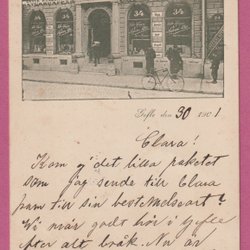 34
34
Gefle den 30 1901
Clara!
Kom ej det lilla paketet
som jag sende till Clara
fram till sin bestemelseort?
Vi mår godt här i Gefle
efter alt bråk. Nu är